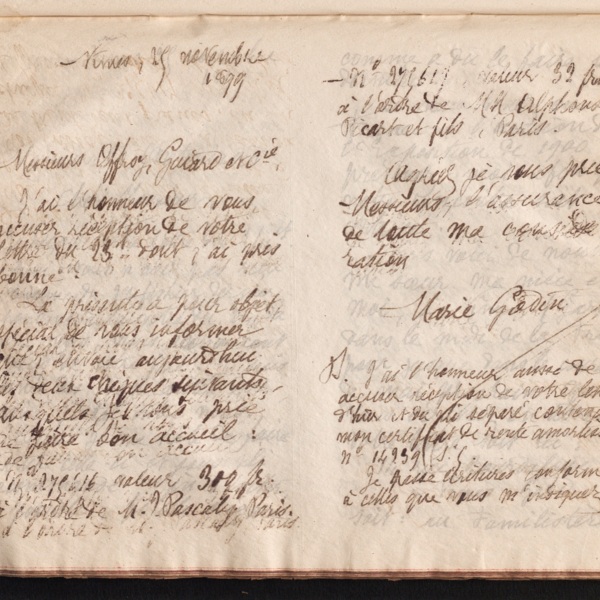 Nîmes, 25 novembre
1899
Messieurs Offroy, Guiard et Cie,
J'ai l'honneur de vous
accuser réception de votre
lettre du 23, dont j'ai pris
bonne
La présente a pour objet
spécial de vous informer
que j'envoie aujourd'hui
les deux chèques suivants,
auxquels je vous prie
de faire bon accueil :
N° 279616 valeur 300 fr.
à l'ordre de M. J. Pascaly, Paris.
N° 279617 valeur 32 fr
à l'ordre de MM Alphonse
Picart et fils, Paris
Agréez, je vous prie
Messieurs, l'assurance
de toute ma considé
ration
Marie Godin
P. J'ai l'honneur aussi de
accuser réception de votre lettre
d'hier et du pli séparé contenant
mon certificat de rente amortiss
n° 14239
Je passe écritures conform
à celles que vous m'indiquez